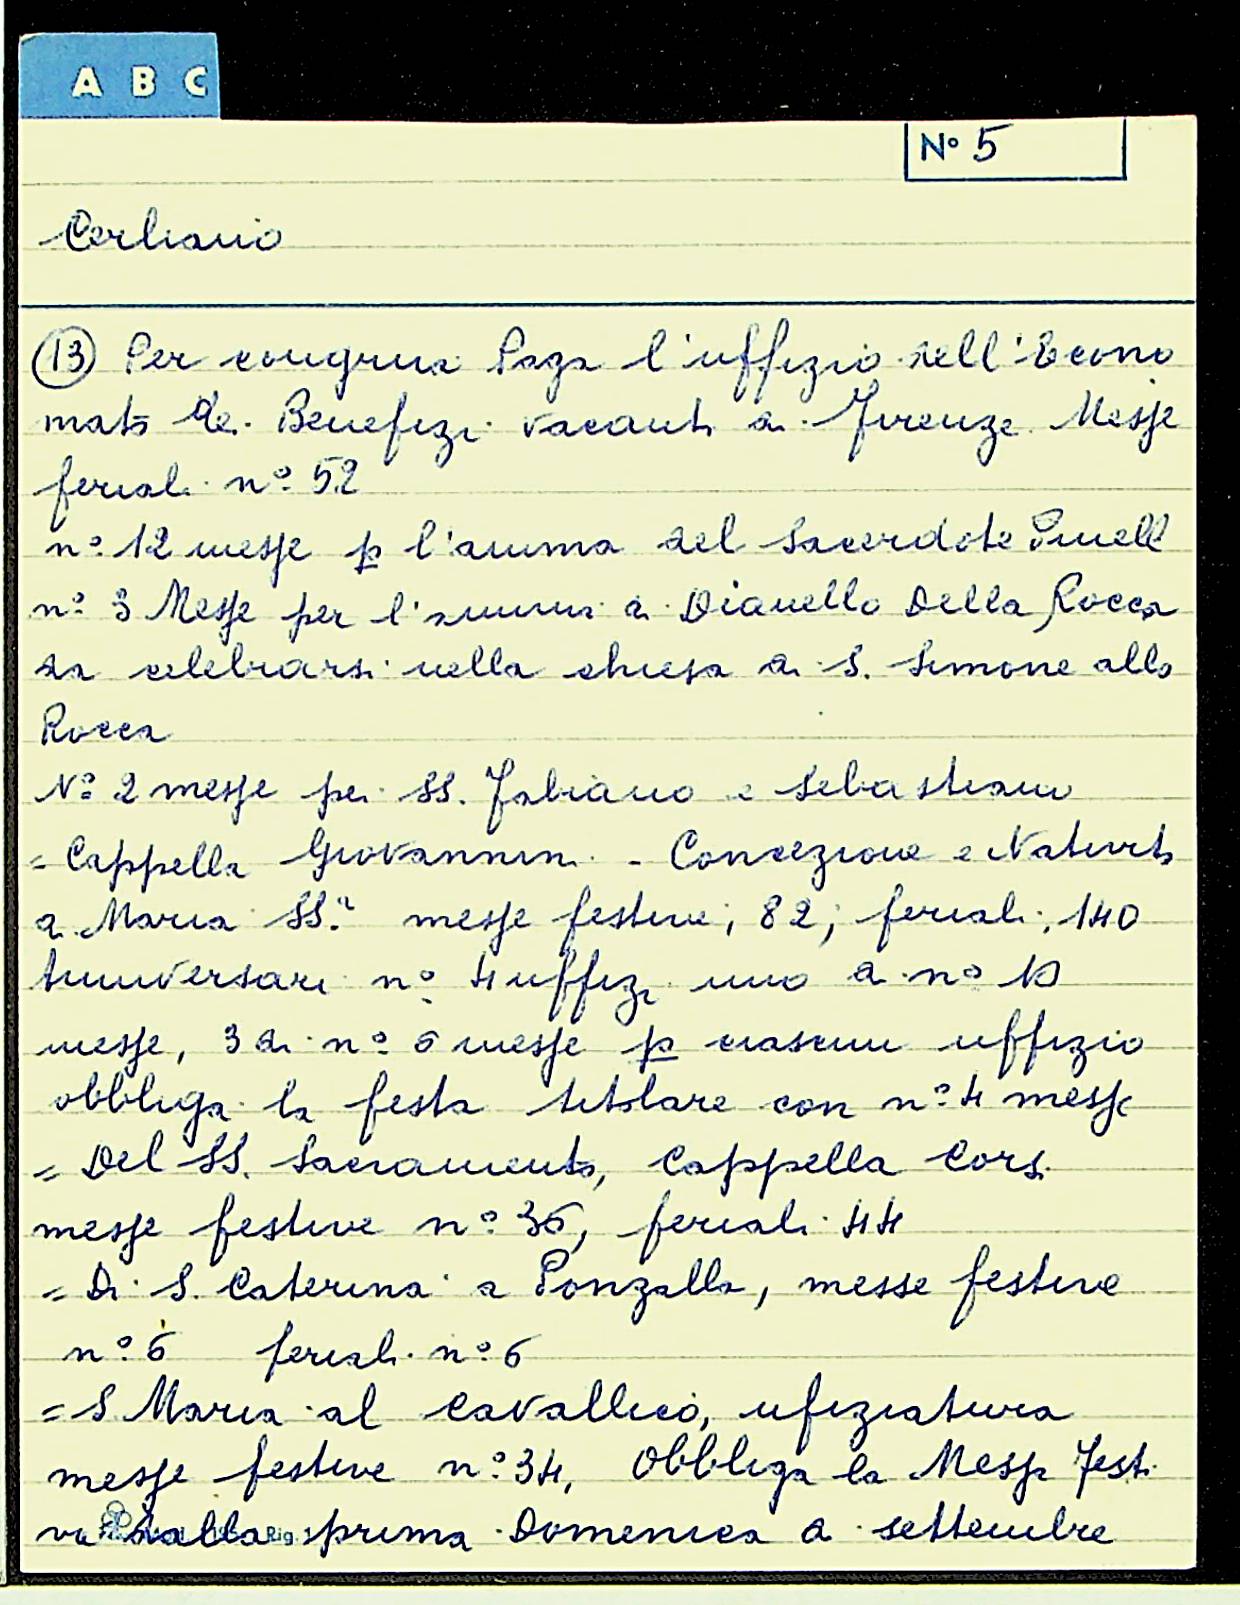 A B C
N° 5
Cerliano
(13) Per congrua Paga l'uffizio dell'Econo
mato de. Benefizi vacanti di Firenze. Messe
feriali n° 52
n° 12 messe p l'anima del Sacerdote
n° 3 Messe per l'anima di Dianello Della Rocca
da celebrarsi nella chiesa di S. Simone alla
Rocca
N° 2 messe pei SS. Fabiano e Sebastiano
= Cappella Giovannini - Concezione e Natività
di Maria SS.a messe festive, 82, feriali, 140
Anniversari n° 4 uffizi uno di n°
messe, 3 di n° 6 messe p ciascun uffizio
obbliga la festa titolare con n° 4 messe
= Del SS. Sacramento, Cappella Corsi
messe festive n° 36, feriali 44
= Di S. Caterina a Ponzalla, messe festive
n° 6 feriali n° 6
= S Maria al Cavallico, ufiziatura
messe festive n° 34, Obbliga la Messa Festi
va dalla prima Domenica di settembre